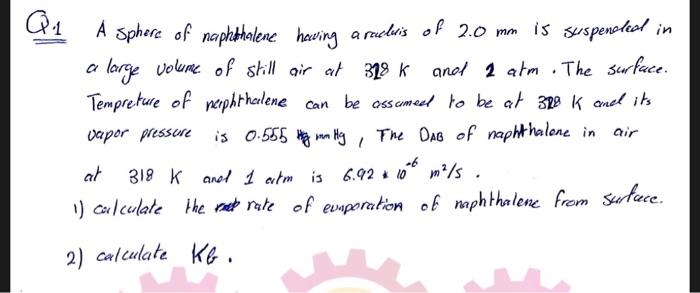 Q.1 A sphere of naphthalene having a radius of 2.0 mm is suspended in
a large volume of still air at 318 K and 2 atm . The surface.
Tempreture of naphthalene can be assumed to be at 328 K and its
vapor pressure is 0.555 mm Hg , The DAB of naphthalene in air
at 318 K and 1 atm is 6.92 * 10^-6 m²/s .
1) calculate the rate of evaporation of naphthalene from surface.
2) calculate KG .